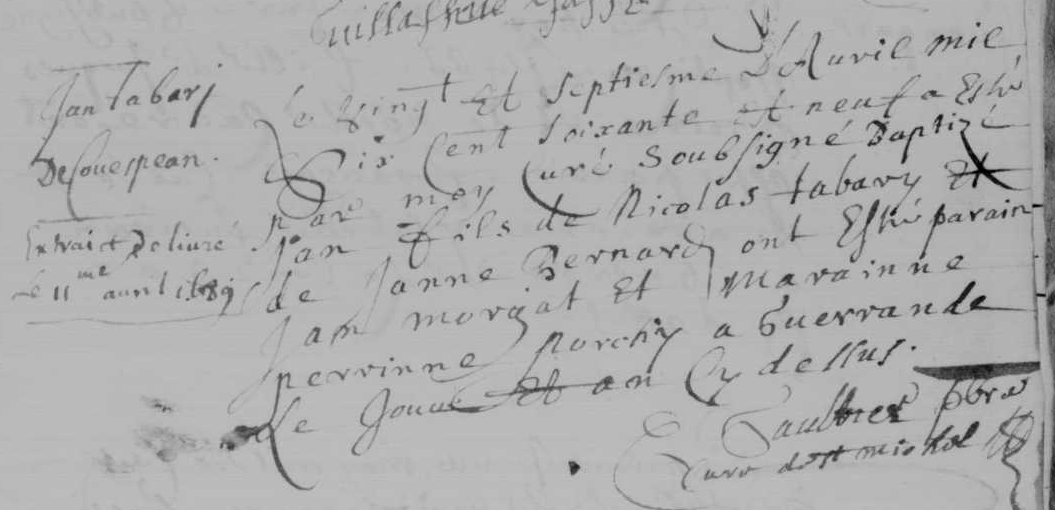 Jan tabary
De Couespean.
Extraict Deliuré
Le 11me auril 1689
Le Vingt Et Septiesme D'Auril mil
Six Cent Soixante et neuf a Esté
par moy Curé Soubsigné Baptizé
Jan fils de Nicolas tabary Et
de Janne Bernard ont Esté parain
Jan morgat Et Marainne
perrinne porchy a Guerrande
Le Jour Et an Cy dessus.
Gaultier pbre
Curé de st michel